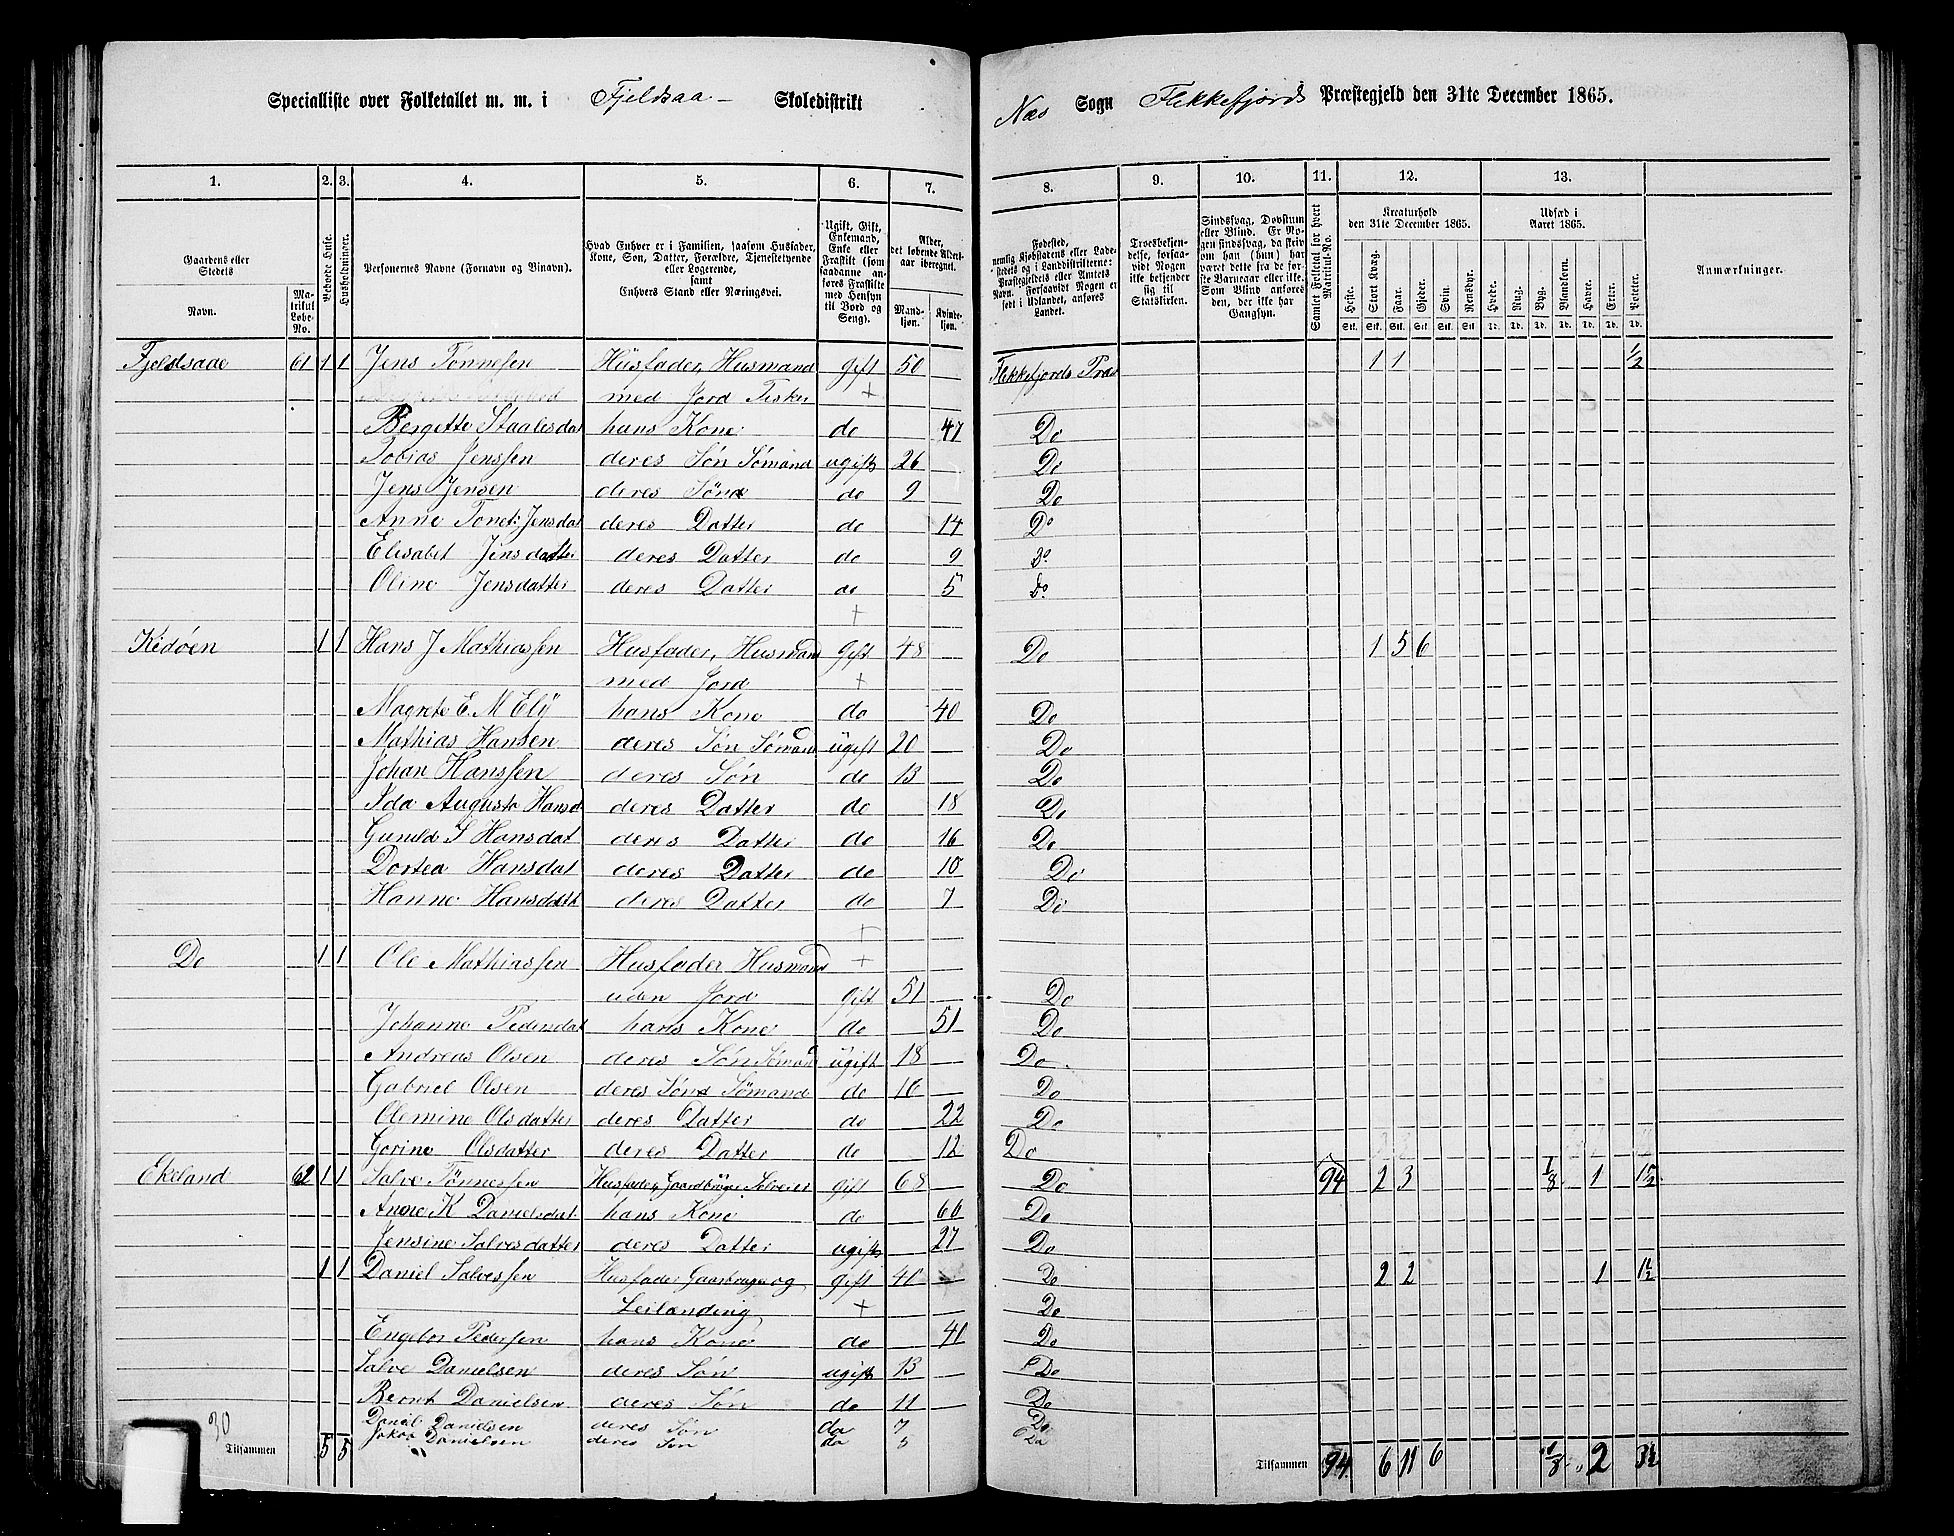 Specialliste over Folketallet m. m. i Fjeldsaa Skoledistrikt Næs Sogn Flekkefjords Præstegjeld den 31te December 1865.
1. 2. 3. 4. 5. 6. 7. 8. 9. 10. 11. 12. 13.
Gaardens eller Stedets
Navn.
Matrikul Løbe-No.
Beboede Huse.
Husholdninger.
Personernes Navne (Fornavn og Binavn).
Hvad Enhver er i Familien, saasom Husfader, Kone, Søn, Datter, Forældre, Tjenestetyende eller Logerende, samt Enhvers Stand eller Næringsvei.
Ugift, Gift, Enkemand, Enke eller Fraskilt (saadanne anføres som Fraskilte med Hensyn til Bord og Seng).
Alder, det løbende Aldersaar iberegnet.
Mandkjøn. Kvindekjøn.
Fødested,
Troesbekjendelse, forsaavidt Nogen ikke bekjender sig til Statskirken.
Samlet Folketal for hvert Matrikul-No.
Kreaturhold den 31te December 1865.
Heste. Stort Kvæg. Faar. Gjeder. Svin. Rensdyr.
Udsæd i Aaret 1865.
Hvede. Rug. Byg. Blandkorn. Havre. Erter. Poteter.
Anmærkninger.
Fjeldsaae 61 1 1 Jens Tønnesen Husfader, Husmand gift 50 Flekkefjords Præs 1 1 1/2
med Jord Fisker +
Bergette Staalesdat hans Kone do 47 Do
Tobias Jenssen deres Søn Sømand ugift 26 Do
Jens Jensen deres Søn do 9 Do
Anne Tonet: Jensdat deres Datter do 14 Do
Elisabet Jensdatter deres Datter do 9 Do
Oline Jensdatter deres Datter do 5 Do
+
Kidøen 1 1 Hans J Mathiassen Husfader, Husmand gift 48 Do 1 5 6
med Jord +
Magrete E. M. Ely hans Kone do 40 Do
Mathias Hansen deres Søn Sømand ugift 20 Do
Johan Hanssen deres Søn do 13 Do
Ida Augusta Hansd deres Datter do 18 Do
Gunild S Hansdat deres Datter do 16 Do
Dortea Hansdat deres Datter do 10 Do
Hanne Hansdatt deres Datter do 7 Do
+
Do 1 1 Ole Mathiassen Husfader Husmand +
uden Jord gift 51 Do
Johanne Pedersdat hans Kone do 51 Do
Andreas Olsen deres Søn Sømand ugift 18 Do
Gabriel Olsen deres Søn Sømand do 16 Do
Olemine Olsdatter deres Datter do 22 Do
Gorine Olsdatter deres Datter do 12 Do
Ekeland 62 1 1 Salve Tønnessen Husfader, Gaardbruger Selveier gift 68 Do 94 2 3 1/8 1 1 1/2
Anne K Danielsdat hans Kone do 60 Do
Jensine Salvesdatter deres Datter ugift 27 Do
1 1 Daniel Salvessen Husfader Gaardbruger og gift 40 Do 2 2 1 1 1/2
Leilænding + Do
Engebor Pedersen hans Kone do 41 Do
Salve Danielsen deres Søn ugift 13 Do
Bernt Danielsen deres Søn do 11 Do
Daniel Danielsen deres Søn do 7 Do
Jakob Danielsen deres Søn do 5 Do
30
Tilsammen 5 5 Tilsammen 94 6 11 6 1/8 2 3 1/2